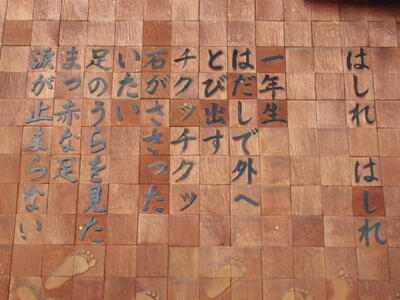 はしれ　はしれ
一年生
はだしで外へ
とび出す
チクッチクッ
石がささった
いたい
足のうらを見た
まっ赤な足
涙が止まらない